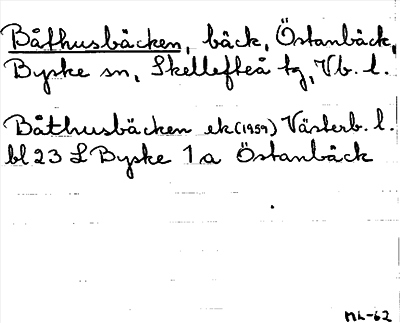 Båthusbäcken, bäck, Östanbäck,
Byske sn, Skellefteå tg, Vb. l.
Båthusbäcken ek (1959) Västerb. l.
bl 23 L Byske 1a Östanbäck
ML-62